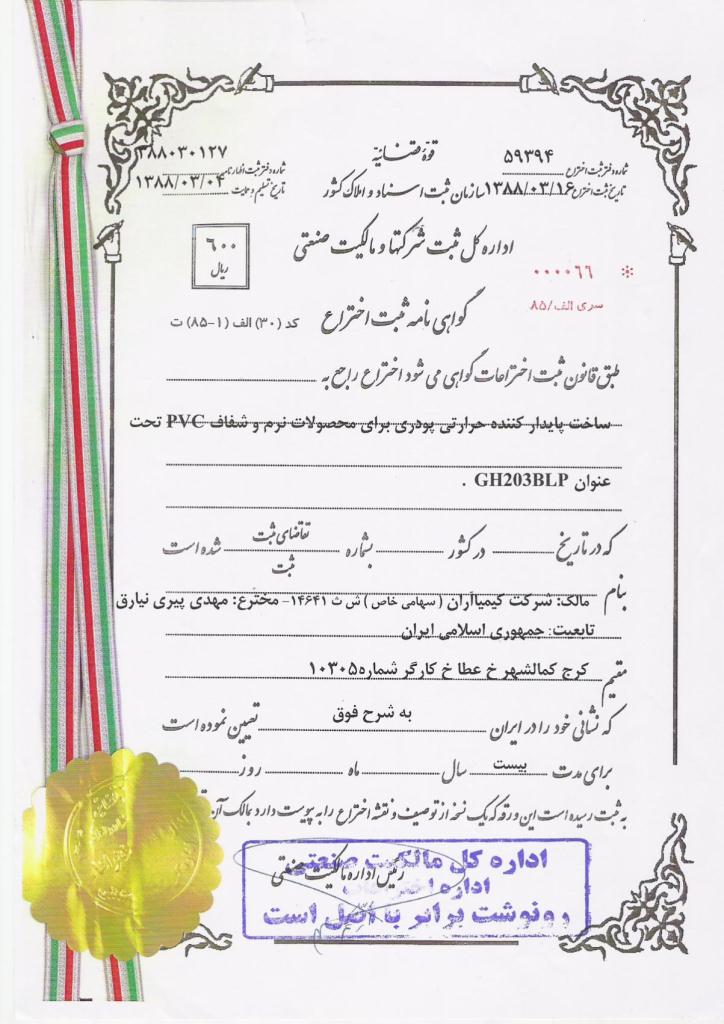 قوّهٔ قضائیّه
شماره دفتر ثبت اختراع ۵۹۳۹۴
شماره دفتر ثبت اظهارنامه ۳۸۸۰۳۰۱۲۷
سازمان ثبت اسناد و املاک کشور
تاریخ ثبت اختراع ۱۳۸۸/۰۳/۱۶
تاریخ تسلیم و حمایت ۱۳۸۸/۰۳/۰۴
اداره کل ثبت شرکتها و مالکیت صنعتی
۶۰۰
ریال
۰۰۰۰۶۶
سری الف/۸۵
گواهی نامه ثبت اختراع
کد (۳۰) الف (۱-۸۵) ت
طبق قانون ثبت اختراعات گواهی می شود اختراع راجع به
ساخت پایدار کننده حرارتی پودری برای محصولات نرم و شفاف PVC تحت
عنوان GH203BLP .
که در تاریخ در کشور بشماره تقاضای ثبت شده است
ثبت
بنام مالک: شرکت کیمیاآران (سهامی خاص) ش ث ۱۴۶۴۱- مخترع: مهدی پیری نیارق
تابعیت: جمهوری اسلامی ایران
مقیم کرج کمالشهر خ عطا خ کارگر شماره ۱۰۳۰۵
که نشانی خود را در ایران به شرح فوق تعیین نموده است
برای مدت بیست سال ماه روز
به ثبت رسیده است این ورقه که یک نسخه از توصیف و نقشه اختراع را به پیوست دارد بمالک آن
رئیس اداره مالکیت صنعتی
اداره کل مالکیت صنعتی
اداره اختراعات
رونوشت برابر با اصل است